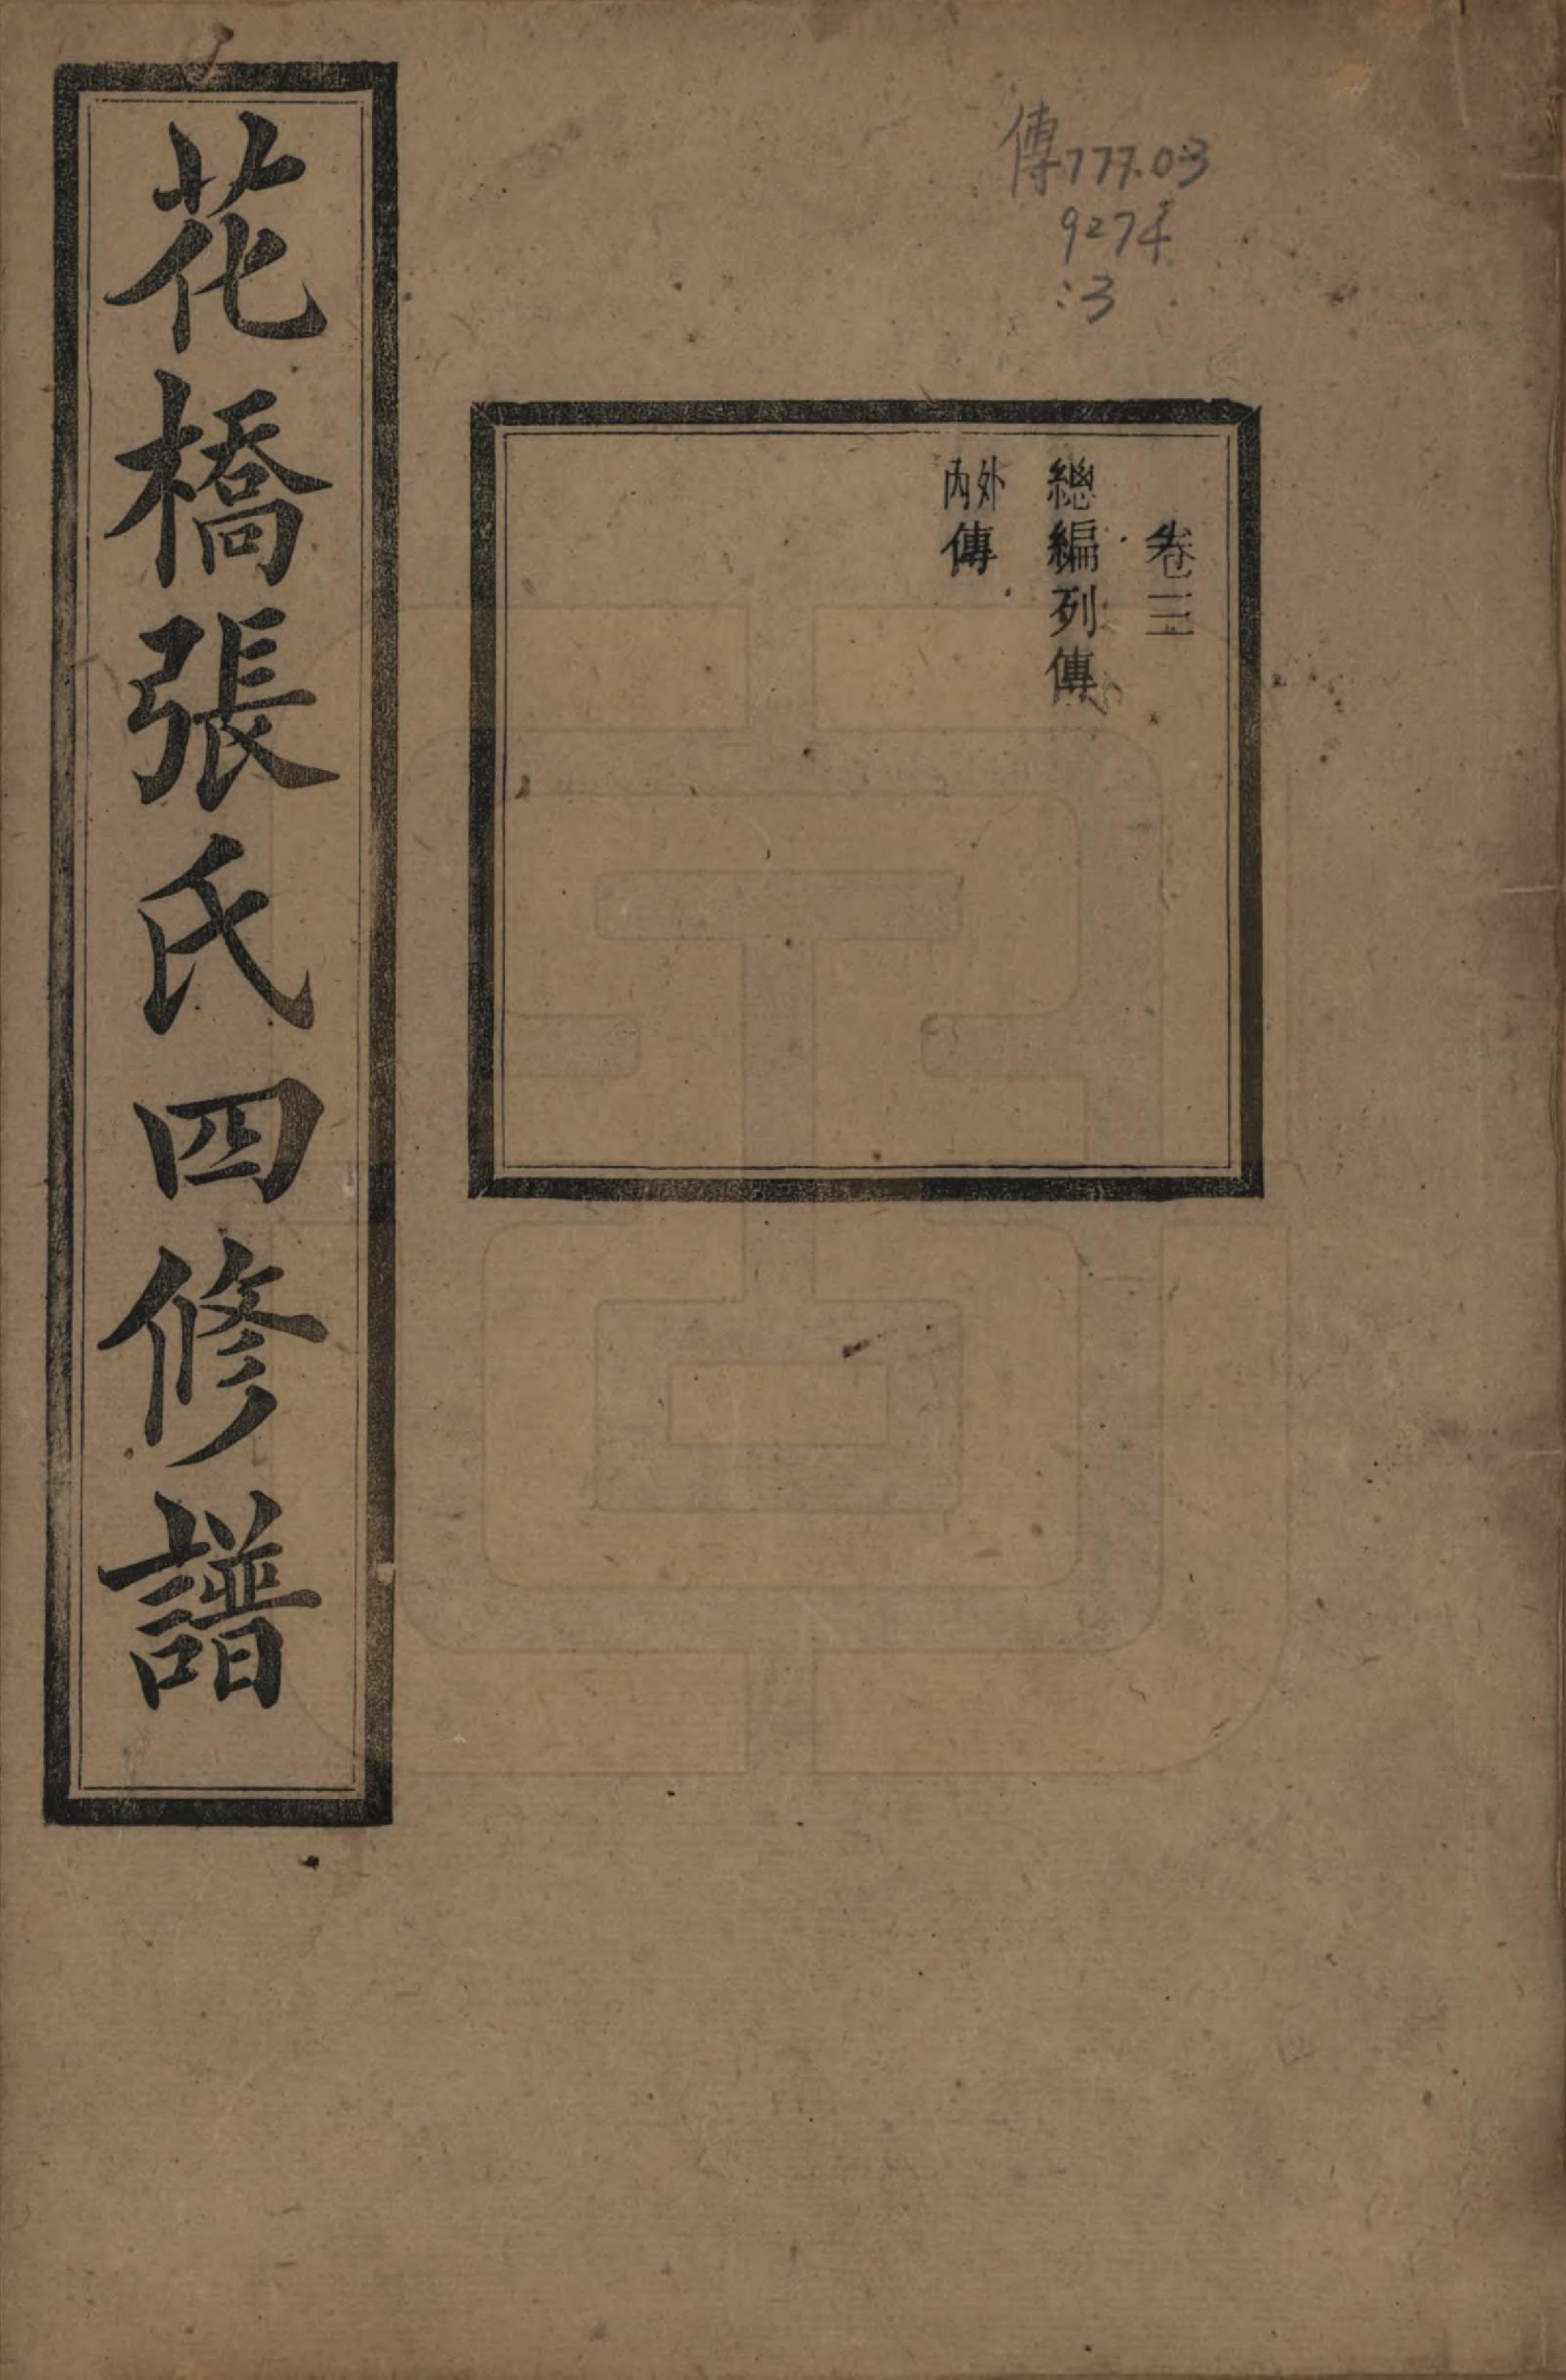 花橋張氏四修譜
傳777.03
9274
:3
卷三
總編列傳
外內傳